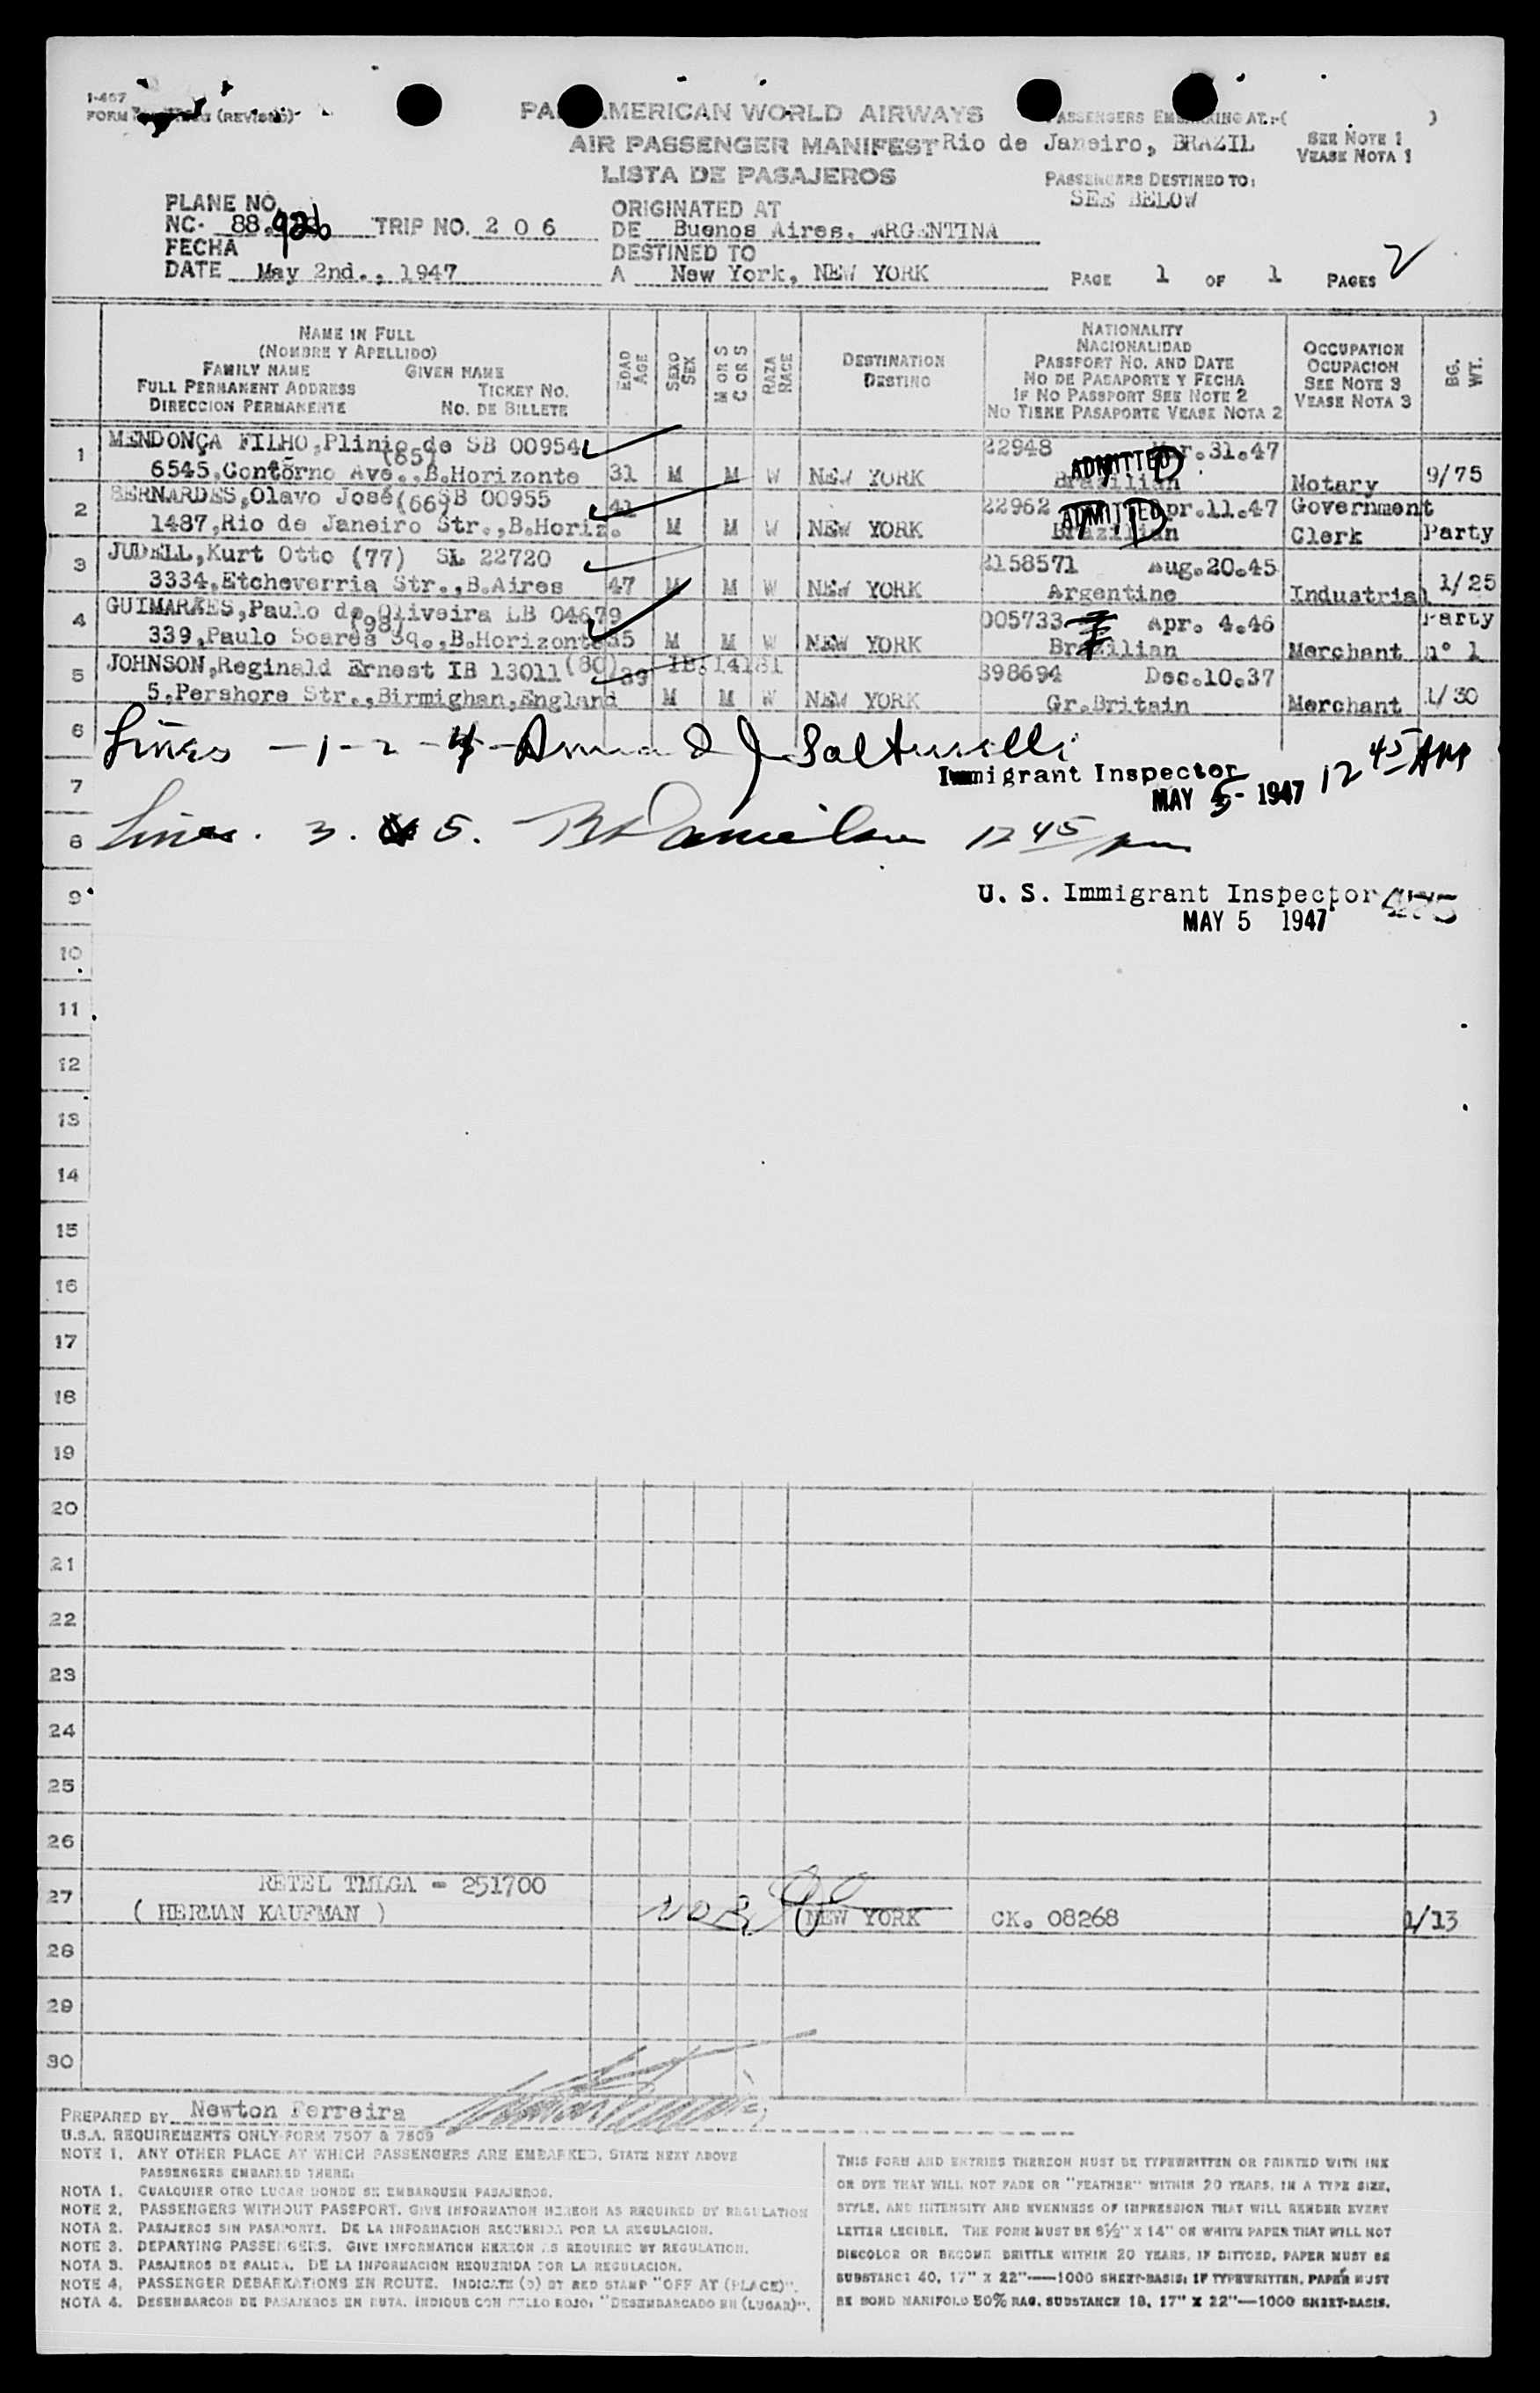 1-467
FORM (REVISED)
PAN AMERICAN WORLD AIRWAYS
AIR PASSENGER MANIFEST
LISTA DE PASAJEROS
PASSENGERS EMBARKING AT:-( )
Rio de Janeiro, BRAZIL
SEE NOTE 1
VEASE NOTA 1
PASSENGERS DESTINED TO:
SEE BELOW
PLANE NO.
NC- 88.926 TRIP NO. 2 0 6
FECHA
DATE May 2nd., 1947
ORIGINATED AT
DE Buenos Aires, ARGENTINA
DESTINED TO
A New York, NEW YORK
PAGE 1 OF 1 PAGES 2
NAME IN FULL
(NOMBRE Y APELLIDO)
FAMILY NAME GIVEN NAME
FULL PERMANENT ADDRESS TICKET NO.
DIRECCION PERMANENTE NO. DE BILLETE
EDAD AGE
SEXO SEX
M OR S C OR S
RAZA RACE
DESTINATION
DESTINO
NATIONALITY
NACIONALIDAD
PASSPORT NO. AND DATE
NO DE PASAPORTE Y FECHA
IF NO PASSPORT SEE NOTE 2
NO TIENE PASAPORTE VEASE NOTA 2
OCCUPATION
OCUPACION
SEE NOTE 3
VEASE NOTA 3
BG. WT.
1 MENDONÇA FILHO,Plinio de SB 00954 22948 Mr.31.47
(65) ADMITTED
6545,Contôrno Ave.,B.Horizonte 31 M M W NEW YORK Brazilian Notary 9/75
2 BERNARDES,Olavo José(66)SB 00955 41 22962 ADMITTED Apr.11.47 Government
1487,Rio de Janeiro Str.,B.Horiz. M M W NEW YORK Brazilian Clerk Party
3 JUDELL,Kurt Otto (77) SL 22720 2158571 Aug.20.45
3334,Etcheverria Str.,B.Aires 47 M M W NEW YORK Argentine Industrial 1/25
4 GUIMARAES,Paulo de Oliveira LB 04679 005733 Apr. 4.46 Party
(98)
339,Paulo Soares Sq.,B.Horizonte 35 M M W NEW YORK Brazilian Merchant n° 1
5 JOHNSON,Reginald Ernest IB 13011 (80) 39 IB.14181 398694 Dec.10.37
5,Pershore Str.,Birmighan,England M M W NEW YORK Gr.Britain Merchant 1/30
6 Lines -1-2-4-
Immigrant Inspector 12 45 AM
7 MAY 5- 1947
8 Lines. 3. & 5. 12 45/pm
9 U. S. Immigrant Inspector 475
MAY 5 1947
10
11
12
13
14
15
16
17
18
19
20
21
22
23
24
25
26
RETEL TMLGA - 251700
27 ( HERMAN KAUFMAN ) NOB NEW YORK CK. 08268 1/13
28
29
30
PREPARED BY Newton Ferreira
U.S.A. REQUIREMENTS ONLY FORM 7507 & 7509
NOTE 1. ANY OTHER PLACE AT WHICH PASSENGERS ARE EMBARKED, STATE NEXT ABOVE
PASSENGERS EMBARKED THERE.
NOTA 1. CUALQUIER OTRO LUGAR DONDE SE EMBARQUEN PASAJEROS.
NOTE 2. PASSENGERS WITHOUT PASSPORT. GIVE INFORMATION HEREON AS REQUIRED BY REGULATION
NOTA 2. PASAJEROS SIN PASAPORTE. DE LA INFORMACION REQUERIDA POR LA REGULACION.
NOTE 3. DEPARTING PASSENGERS. GIVE INFORMATION HEREON AS REQUIRED BY REGULATION.
NOTA 3. PASAJEROS DE SALIDA. DE LA INFORMACION REQUERIDA POR LA REGULACION.
NOTE 4. PASSENGER DEBARKATIONS EN ROUTE. INDICATE (O) BY RED STAMP "OFF AT (PLACE)".
NOTA 4. DESEMBARCOS DE PASAJEROS EN RUTA. INDIQUE CON SELLO ROJO: "DESEMBARCADO EN (LUGAR)".
THIS FORM AND ENTRIES THEREON MUST BE TYPEWRITTEN OR PRINTED WITH INK
OR DYE THAT WILL NOT FADE OR "FEATHER" WITHIN 20 YEARS, IN A TYPE SIZE,
STYLE, AND INTENSITY AND EVENNESS OF IMPRESSION THAT WILL RENDER EVERY
LETTER LEGIBLE. THE FORM MUST BE 8½" X 14" ON WHITE PAPER THAT WILL NOT
DISCOLOR OR BECOME BRITTLE WITHIN 20 YEARS. IF DITTOED, PAPER MUST BE
SUBSTANCE 40, 17" X 22"—1000 SHEET-BASIS; IF TYPEWRITTEN, PAPER MUST
BE BOND MANIFOLD 50% RAG, SUBSTANCE 18, 17" X 22"—1000 SHEET-BASIS.